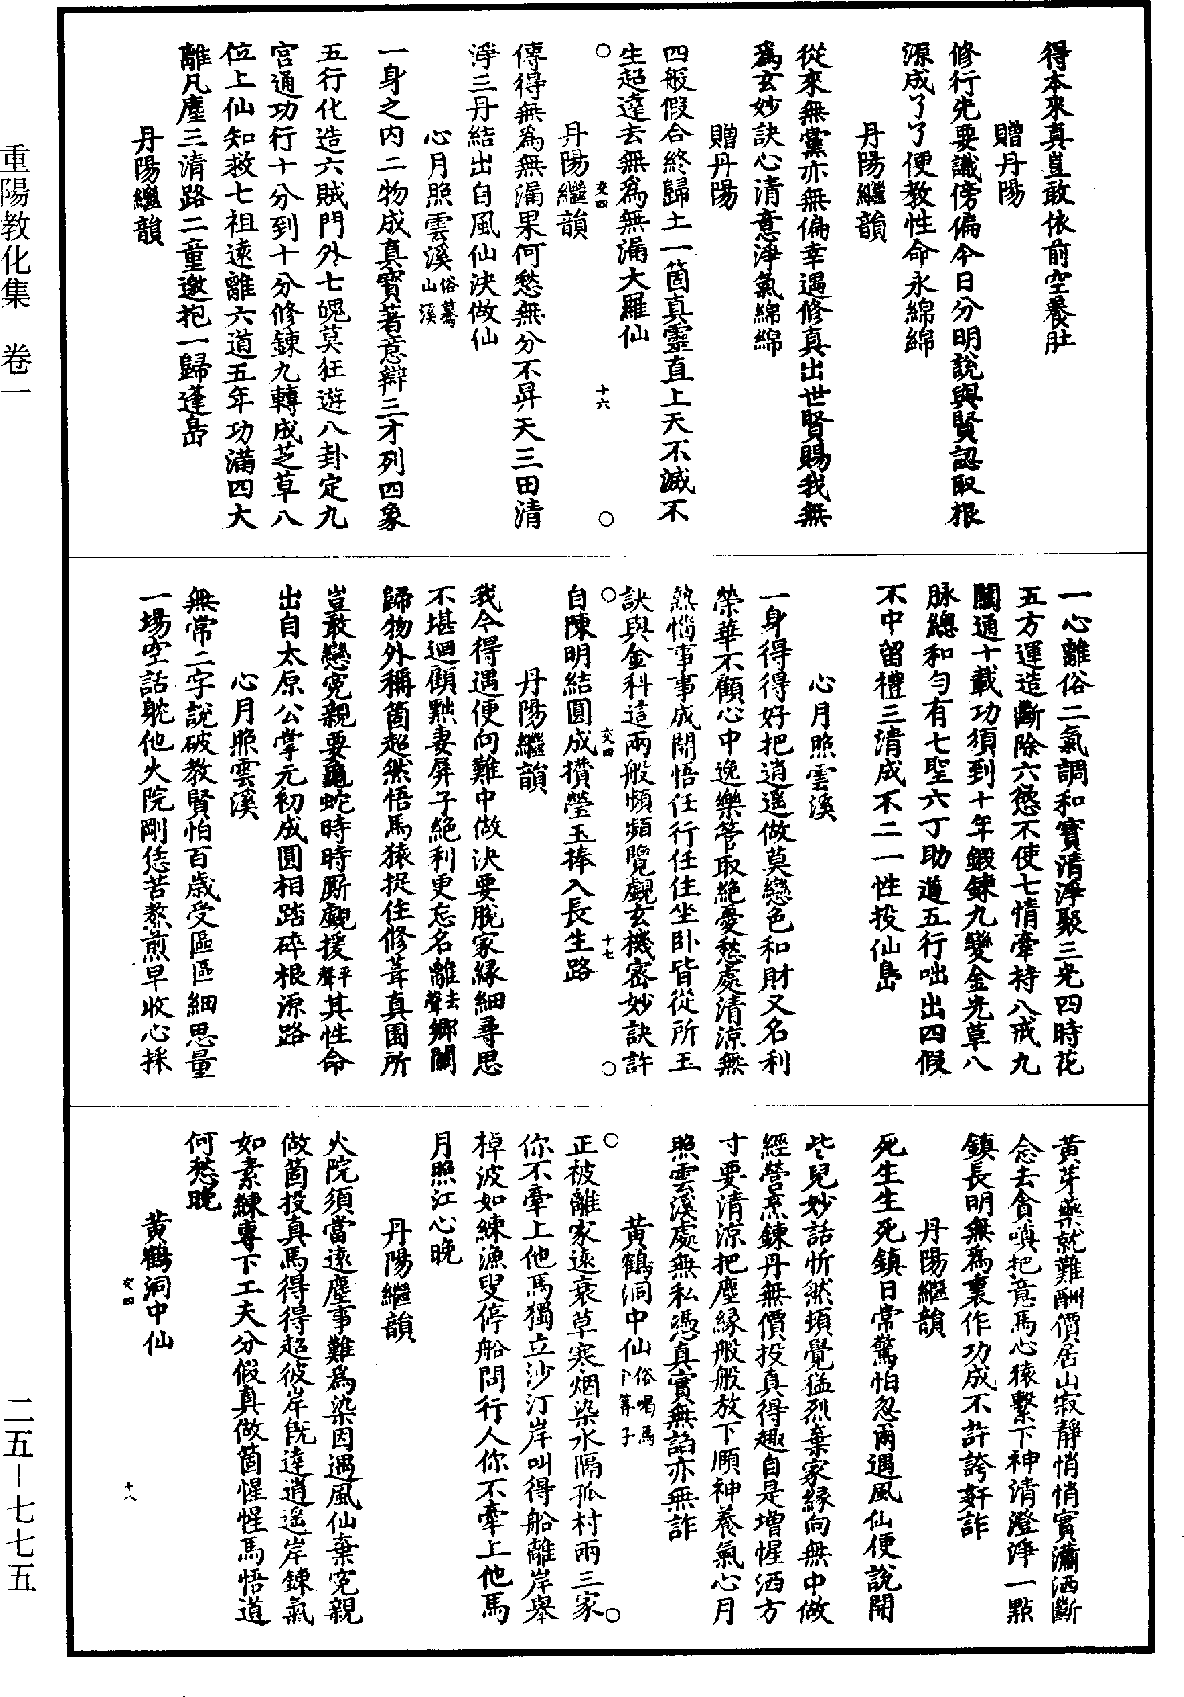 重陽教化集　卷一
二五－七七五
得本來真豈敢依前空養肚
贈丹陽
修行先要識傍偏今日分明說與賢認取根
源成了了便教性命永綿綿
丹陽繼韻
從來無黨亦無偏幸遇修真出世賢賜我無
爲玄妙訣心清意淨氣綿綿
贈丹陽
四般假合終歸土一箇真靈直上天不滅不
生超達去無爲無漏大羅仙
丹陽繼韻
交四
十六
傳得無為無漏果何愁無分不昇天三田清
淨三丹結出自風仙決做仙
心月照雲溪俗驀山溪
一身之内二物成真寳著意辯三才列四象
五行化造六賊門外七魄莫狂遊八卦定九
宫通功行十分到十分修鍊九轉成芝草八
位上仙知救七祖遠離六道五年功滿四大
離凡塵三清路二童邀抱一歸逢島
丹陽繼韻
一心離俗二氣調和寳清淨聚三光四時花
五方運造斷除六慾不使七情牽持八戒九
關通十載功須到十年鍛鍊九變金光草八
脉總和勻有七聖六丁助道五行咄出四假
不中留禮三清成不二一性投仙島
心月照雲溪
一身得得好把逍遥做莫戀色和財又名利
榮華不顧心中逸樂管取絶憂愁處清凉無
熱惱事事成開悟任行任住坐卧皆從所玉
訣與金科這兩般頻頻覽覷玄機密妙訣許
交四
十七
自陳明結圓成攢瑩玉捧入長生路
丹陽繼韻
我今得遇便向難中做決要脫家緣細尋思
不堪迴顧㸃妻屏子絶利更忘名離去聲鄉關
歸物外稱箇超然悟馬猿捉住修葺真園所
豈敢戀寃親要龜蛇時時厮覷援平聲其性命
出自太原公掌元初成圓相踏碎根源路
心月照雲溪
無常二字說破教賢怕百歲受區區細思量
一塲空話躭他火院剛恁苦熬煎早收心採
黃芽藥就難酬價居山寂靜悄悄實瀟洒斷
念去貪嗔把意馬心猿繫下神清澄淨一㸃
鎮長明無爲裏作功成不許誇奸詐
丹陽繼韻
死生生死鎮日常驚怕忽爾遇風仙便說開
些兒妙話忻然頓覺猛烈棄家緣向無中做
經營烹鍊丹無價投真得趣自是增惺洒方
寸要清凉把塵緣般般放下願神養氣心月
照雲溪處無私憑真實無謟亦無詐
黄鶴洞中仙俗喝馬卜筭子
正被離家遠衰草寒烟染水隔孤村兩三家
你不牽上他馬獨立沙汀岸叫得船離岸舉
棹波如練漁叟停船問行人你不牽上他馬
月照江心晚
丹陽繼韻
火院須當遠塵事難爲染因遇風仙棄寃親
做箇投真馬得得超彼岸旣達逍遥岸鍊氣
如素練專下工夫分假真做箇惺惺馬悟道
何愁晚
黃鶴洞中仙
交四
十八